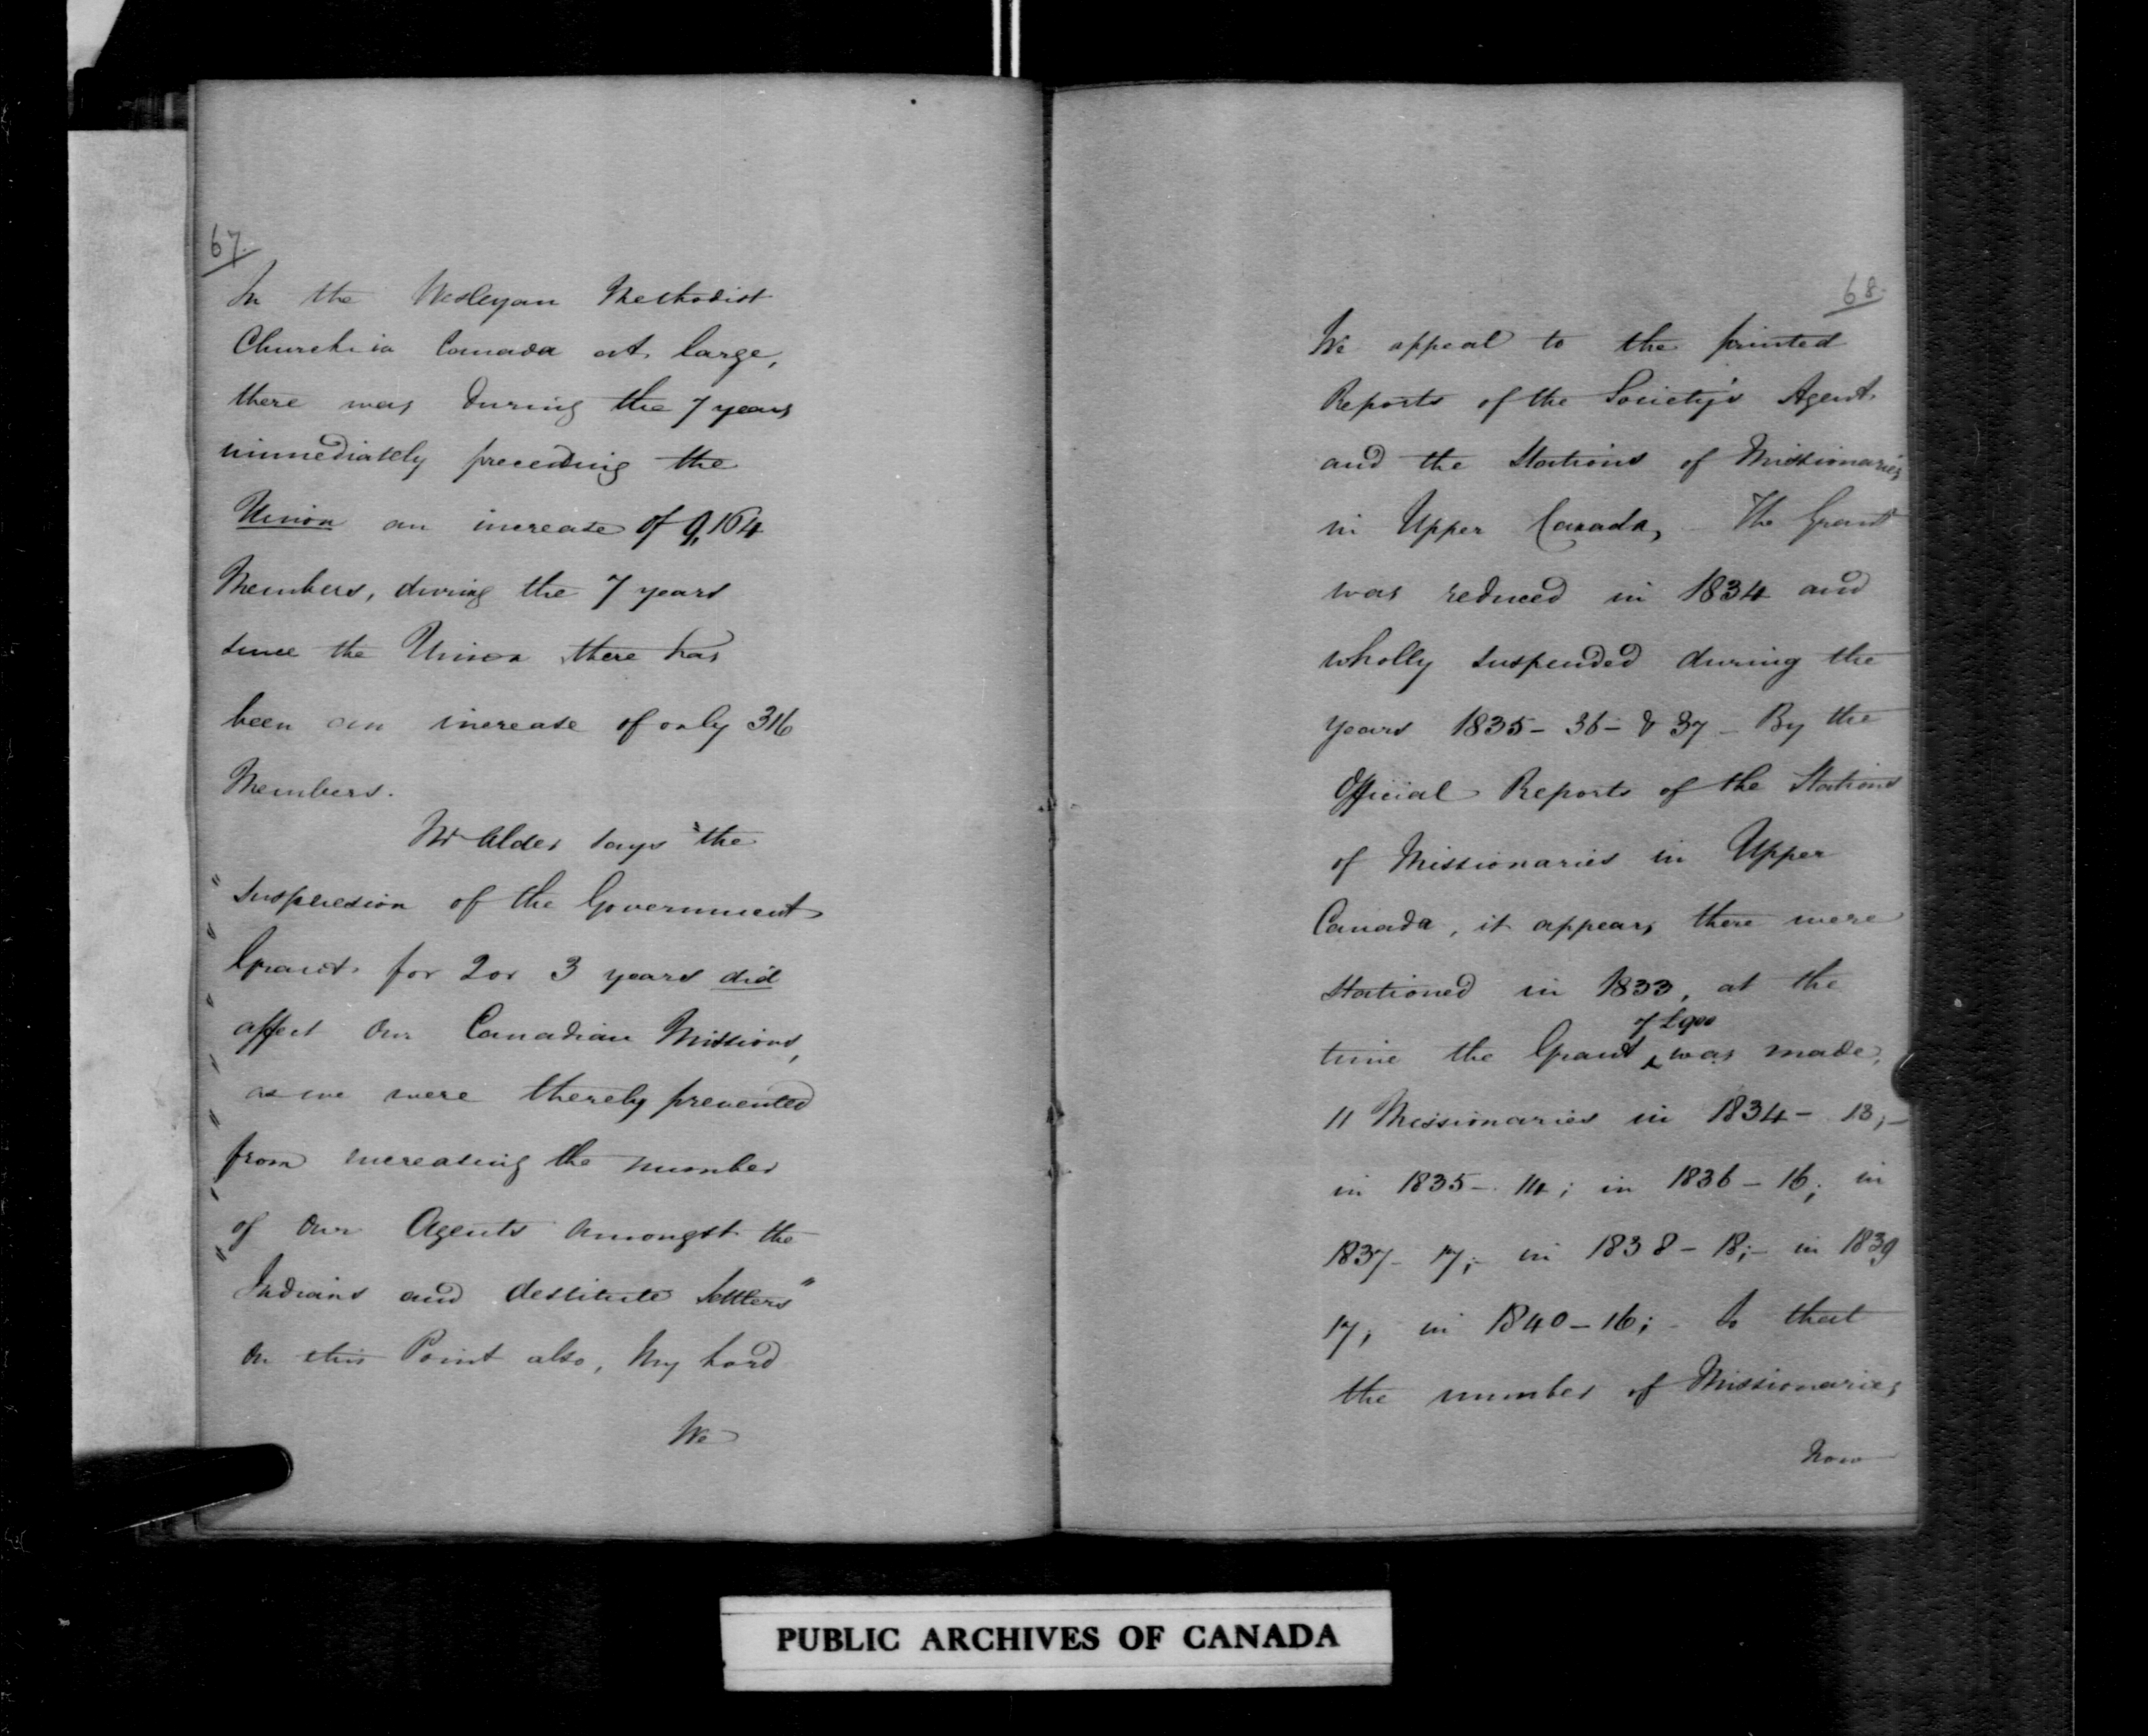 67.
In the Wesleyan Methodist
Church in Canada at large,
there was during the 7 years
immediately preceding the
Union an increase of 9,164
Members, during the 7 years
since the Union there has
been an increase of only 316
Members.
Mr Alder says "the
" suspension of the Government
" Grant for 2 or 3 years did
" affect our Canadian Missions,
" as we were thereby prevented
" from increasing the number
" of our Agents amongst the
" Indians and destitute Settlers"
On this Point also, My Lord
We
68.
We appeal to the printed
Reports of the Society's Agent
and the Stations of Missionaries
in Upper Canada, – The Grant
was reduced in 1834 and
wholly suspended during the
years 1835 – 36 – & 37 – By the
Official Reports of the Stations
of Missionaries in Upper
Canada, it appears there were
stationed in 1833, at the
of £900
time the Grant ^ was made,
11 Missionaries in 1834 – 13; –
in 1835 – 14; in 1836 – 16; in
1837 – 17; – in 1838 – 18; – in 1839
17; in 1840 – 16; – So that
the number of Missionaries
now
PUBLIC ARCHIVES OF CANADA